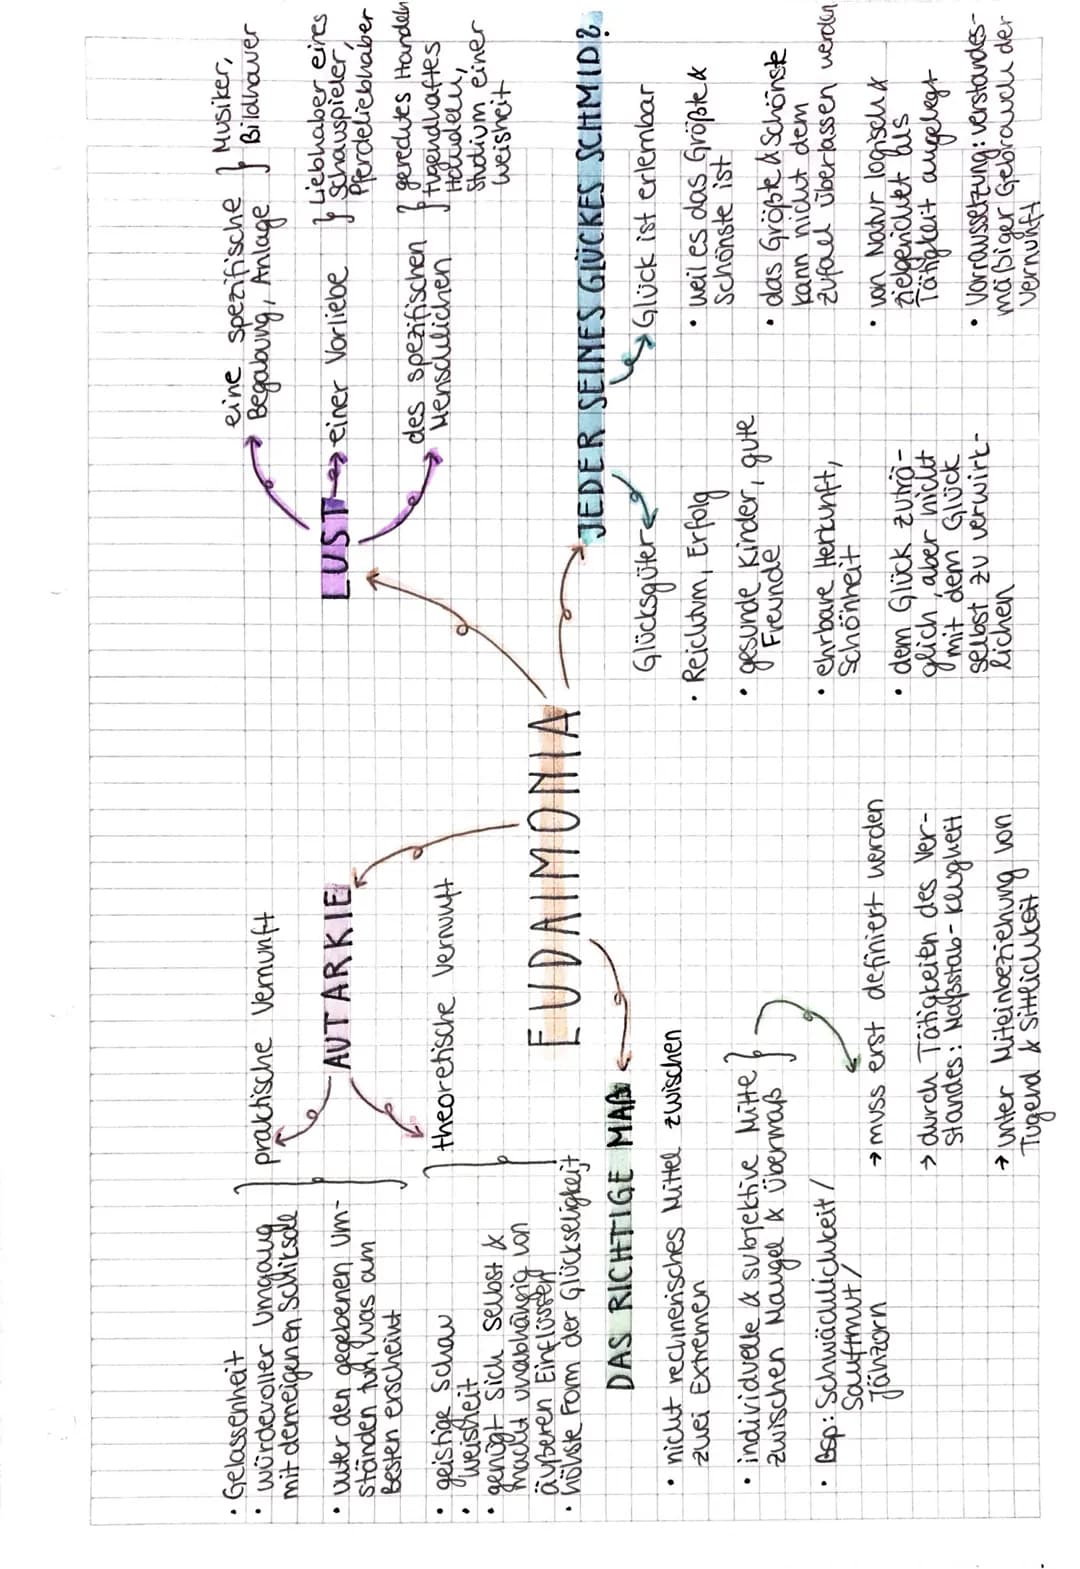 EUDAIMONIA
AUTARKIE
praktische Vernunft
• Gelassenheit
• würdevoller Umgang
mit dem eigenen Schicksal
• unter den gegebenen Um-
ständen tun, was am
Besten erscheint
theoretische Vernunft
• geistige Schau
• Weisheit
• genügt sich selbst &
macht unabhängig von
äußeren Einflüssen
• höhste Form der Glückseligkeit
LUST
eine spezifische
Begabung, Anlage
Musiker,
Bildhauer
einer Vorliebe
Liebhaber eines
Schauspieler,
Pferdeliebhaber
des spezifischen
Menschlichen
gerechtes Handeln
tugendhaftes
Handeln,
Studium einer
Weisheit
DAS RICHTIGE MAß
• nicht rechnerisches Mittel zwischen
zwei Extremen
• individuelle & subjektive Mitte
zwischen Mangel & Übermaß
• Bsp: Schwächlichkeit /
Sanftmut /
Jähzorn
→ muss erst definiert werden
→ durch Tätigkeiten des Ver-
standes: Maßstab - Klugheit
→ unter Miteinbeziehung von
Tugend & Sittlichkeit
JEDER SEINES GLÜCKES SCHMID?
Glücksgüter
• Reichtum, Erfolg
• gesunde Kinder, gute
Freunde
• ehrbare Herkunft,
Schönheit
• dem Glück zuträ-
glich, aber nicht
mit dem Glück
selbst zu verwirk-
lichen
Glück ist erlernbar
• weil es das Größte &
Schönste ist
• das Größte & Schönste
kann nicht dem
Zufall überlassen werden
• von Natur logisch &
zielgerichtet aus
Tätigkeit angelegt
• Vorraussetzung: verstandes-
mäßiger Gebrauch der
Vernunft